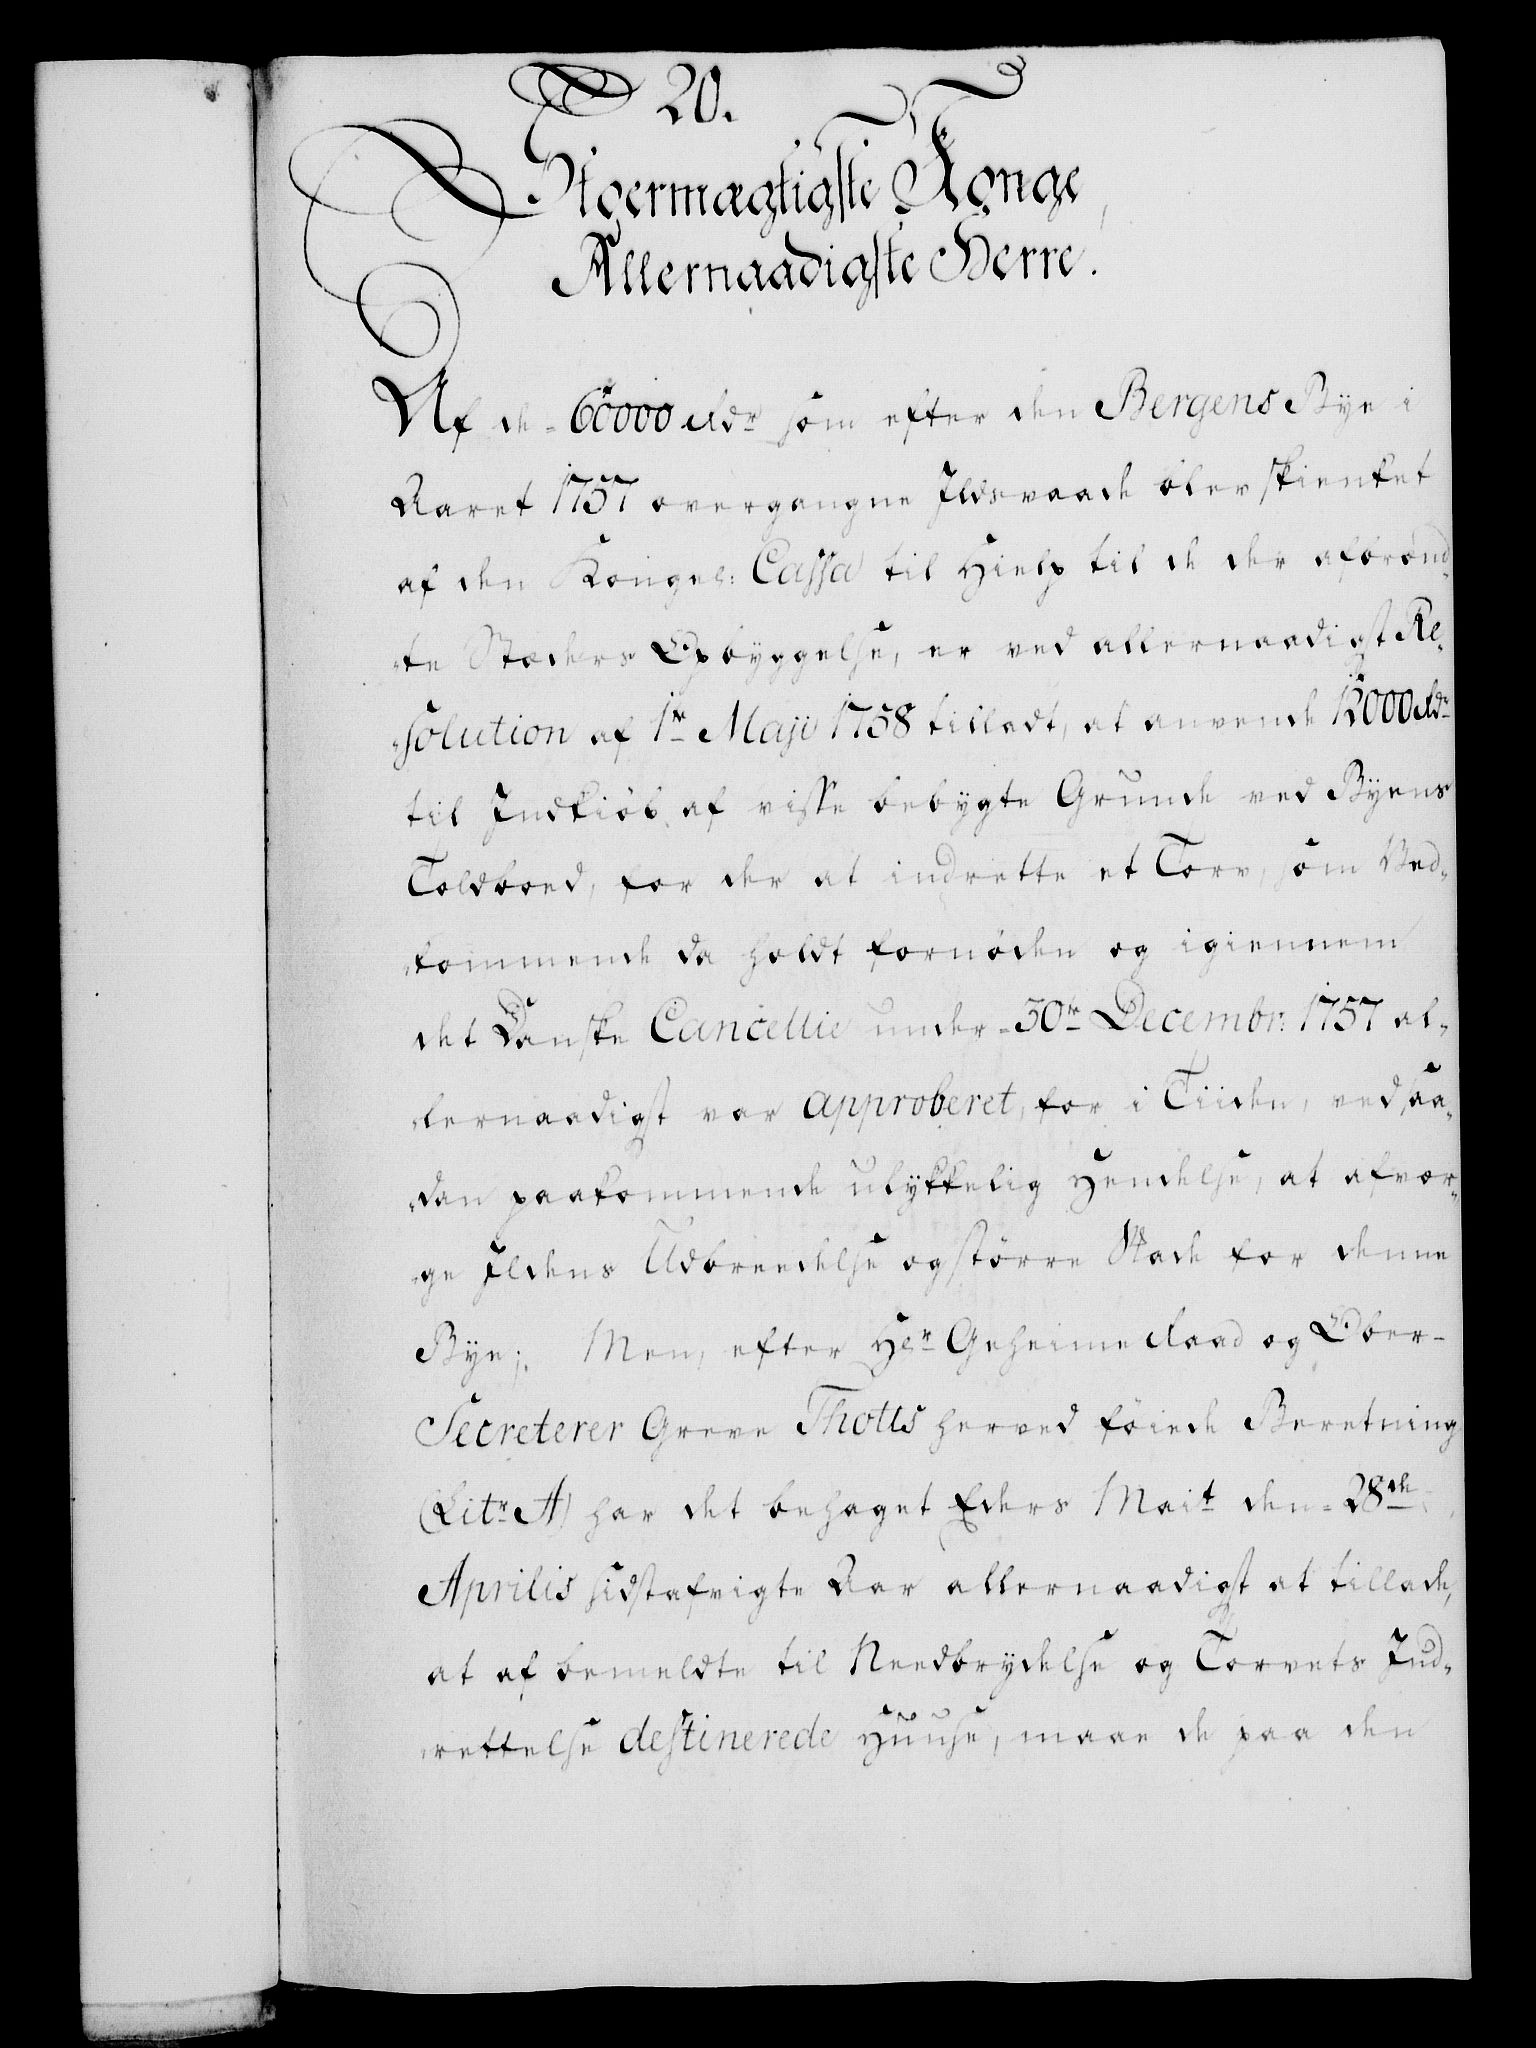 20.
Stoermægtigste Konge,
Allernaadigste Herre.
Af de 60000 Rdr som efter den Bergens Bye i
Aaret 1757 overgangne Ildsvaade blev skienket
af den Kongel: Cassa til Hielp til de der afbrønd-
te Stæders Opbyggelse, er ved allernaadigst Re-
solution af 1te Maji 1758 tilladt, at anvende 12000 Rdr
til Indkiøb af visse bebygte Grunde ved Byens
Toldboed, for der at indrette et Torv, som Ved-
kommende da holdt fornøden og igiennem
det Danske Cancellie under 30te Decembr: 1757 al-
lernaadigst var approberet, for i Tiiden, ved saa-
dan paakommende ulykkelig Hendelse, at afvær-
ge Ildens Udbreedelse og større Skade for denne
Bye; Men, efter Hr Geheime Raad og Ober-
Secreterer Greve Thotts herved føiede Beretning
(Litr A) har det behaget Eders Mait den 28de
Aprilis sidstafvigte Aar allernaadigst at tillade,
at af bemeldte til Needbrydelse og Torvets Ind-
rettelse destinerede Huuse, maae de paa den